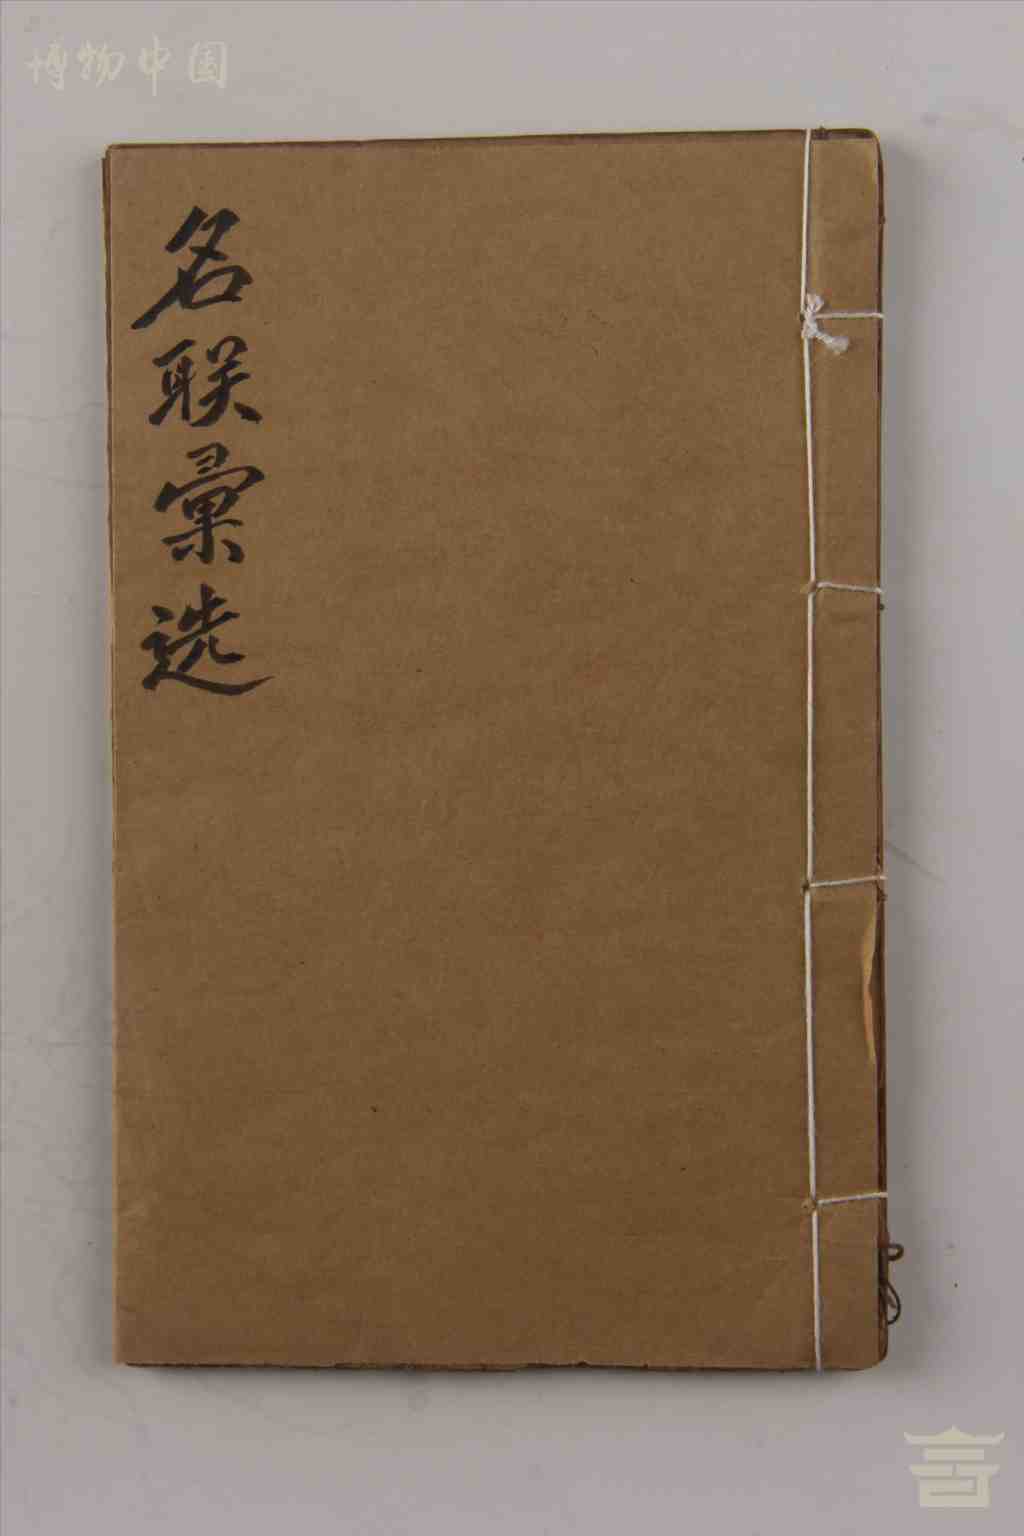 博物中国
名联彙选